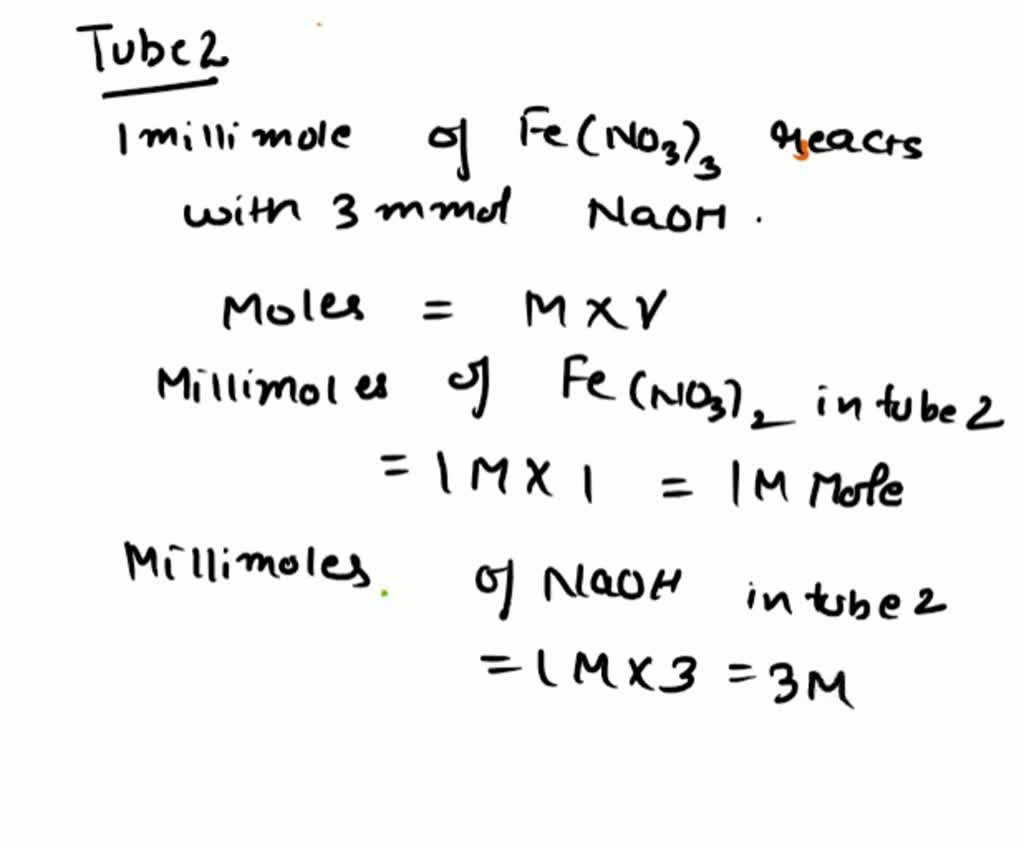 Tube 2
1 millimole of Fe(NO3)3 reacts
with 3 mmol NaOH.
Moles = M x V
Millimoles of Fe(NO3)2 in tube 2
= 1M x 1 = 1M Mole
Millimoles. of NaOH in tube 2
= 1M x 3 = 3M